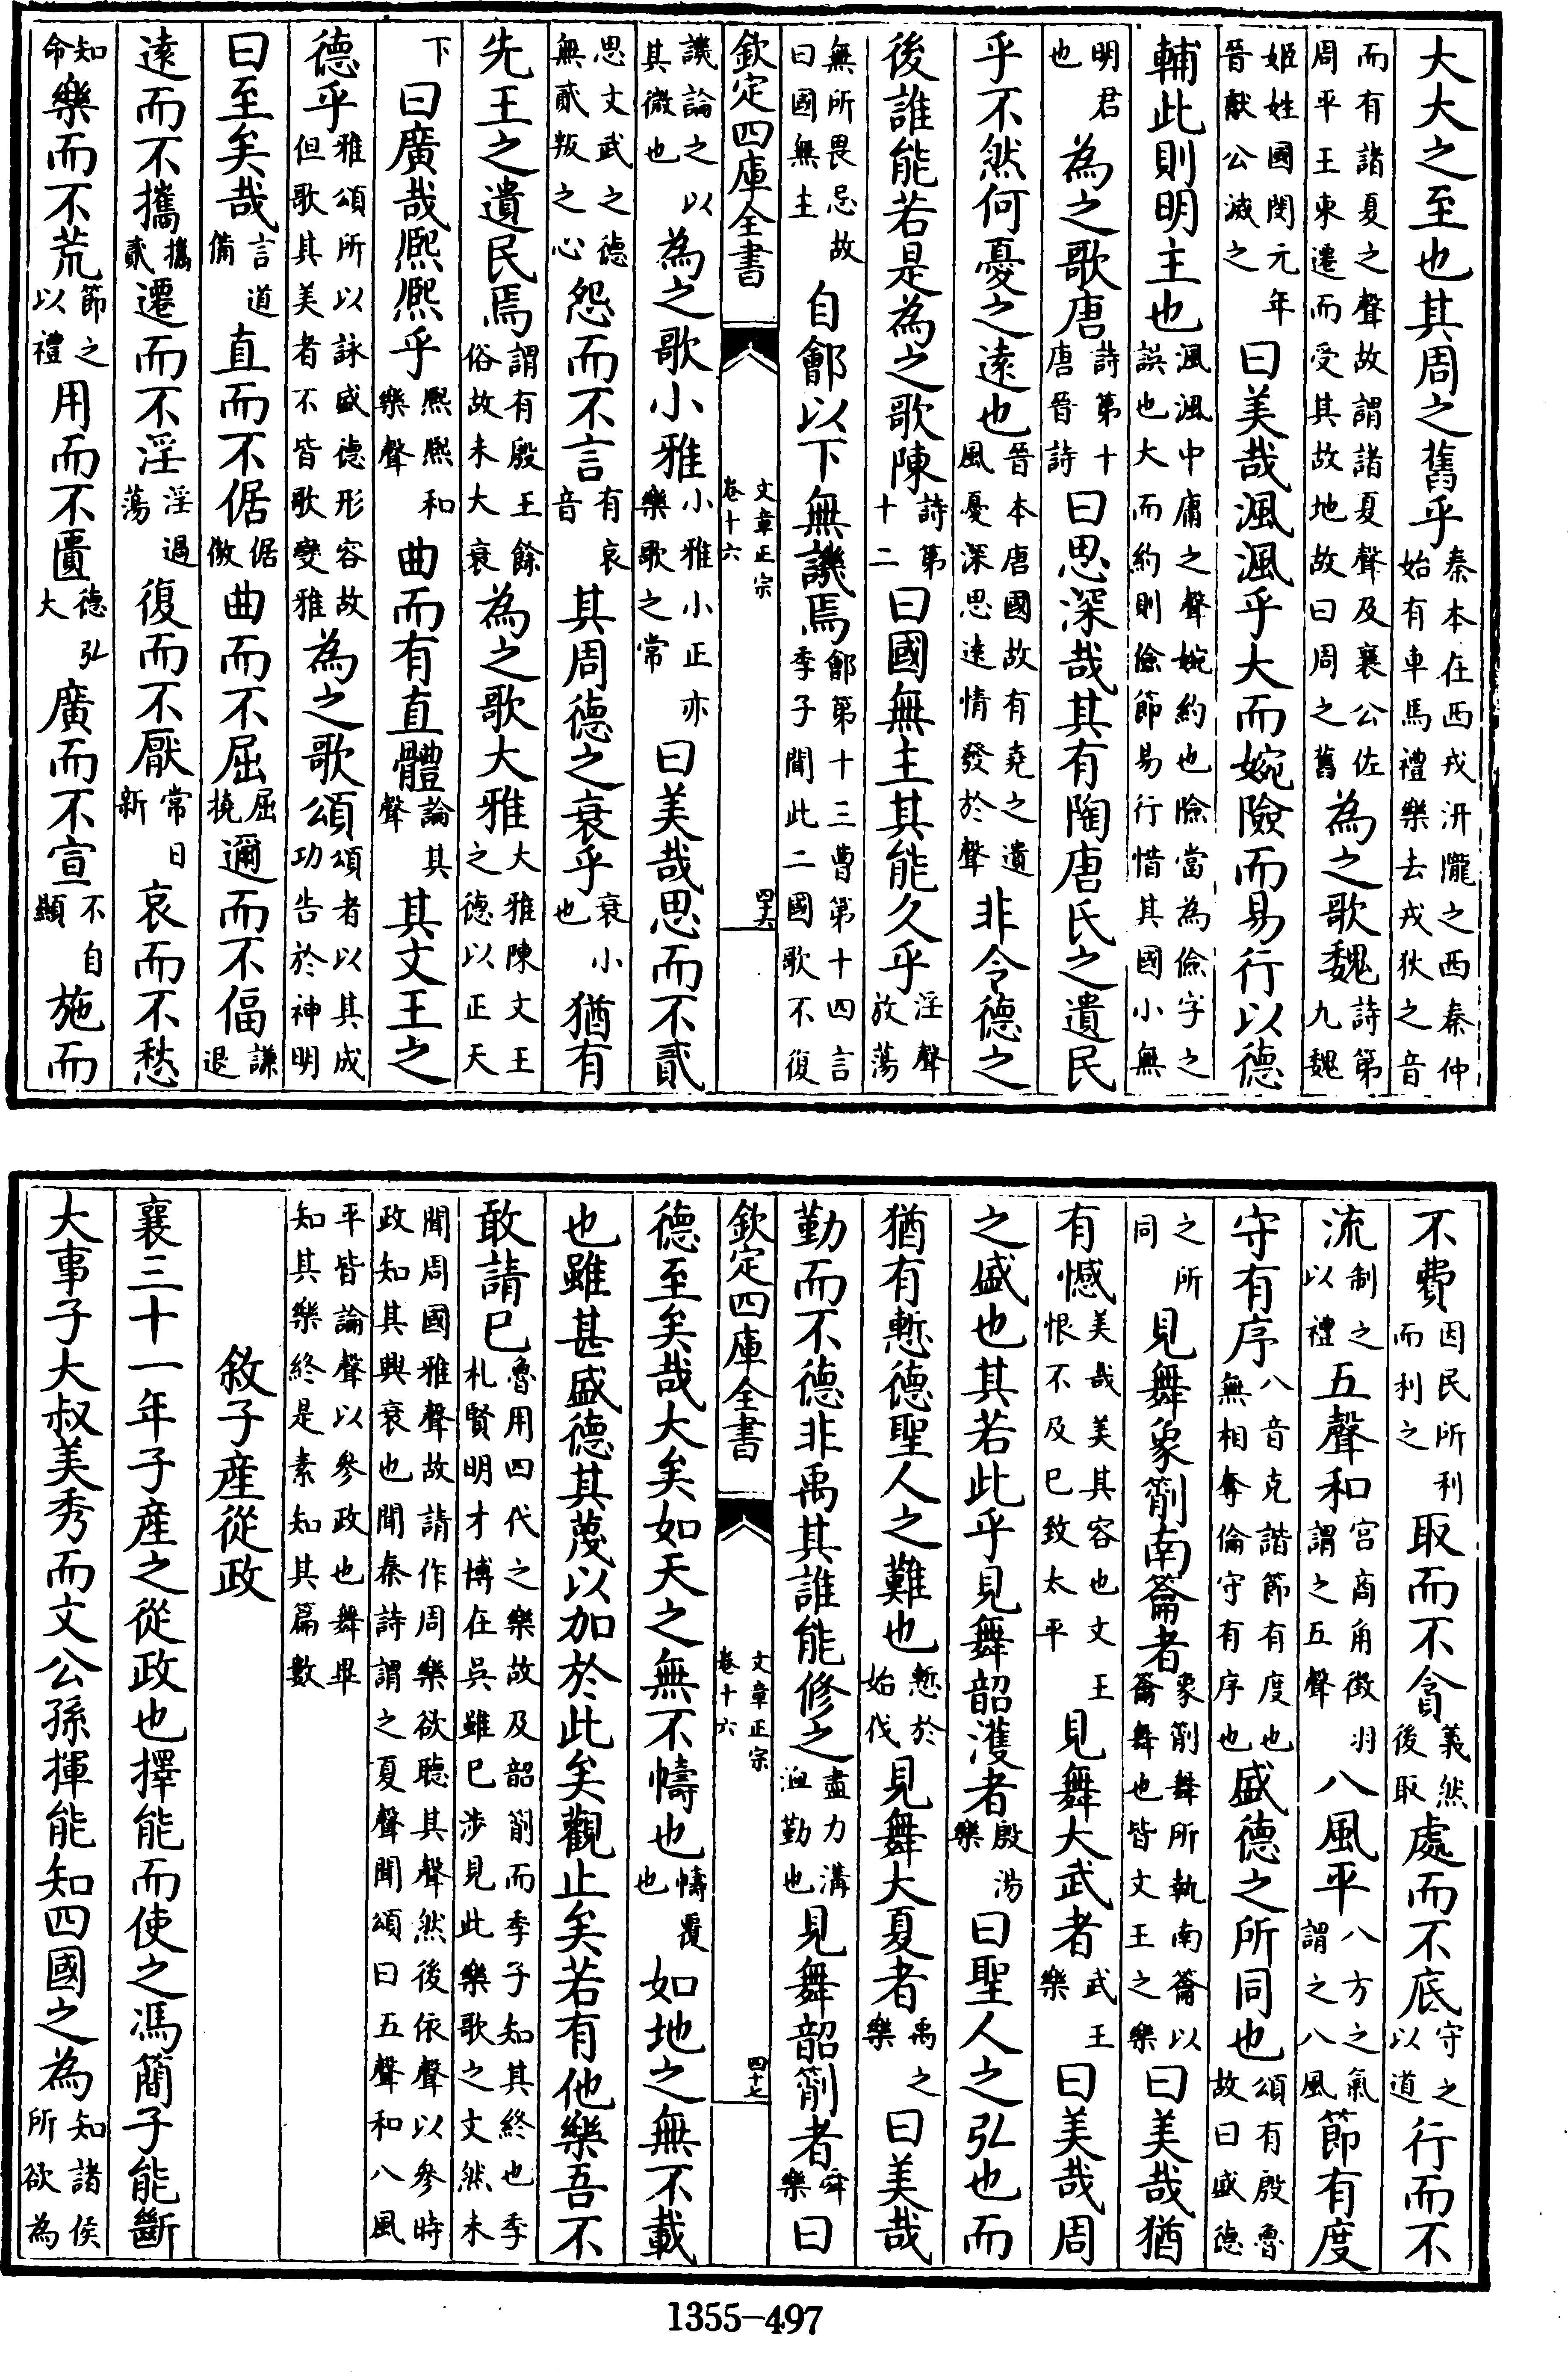 大大之至也其周之舊乎秦本在西戎汧隴之西秦仲始有車馬禮樂去戎狄之音
而有諸夏之聲故謂諸夏聲及襄公佐周平王東遷而受其故地故曰周之舊為之歌魏詩第九魏
姬姓國閔元年晉獻公滅之曰美哉渢渢乎大而婉險而易行以德
輔此則明主也渢渢中庸之聲婉約也險當為儉字之誤也大而約則儉節易行惜其國小無
明君也為之歌唐詩第十唐晉詩曰思深哉其有陶唐氏之遺民
乎不然何憂之遠也晉本唐國故有堯之遺風憂深思遠情發於聲非令德之
後誰能若是為之歌陳詩第十二曰國無主其能久乎淫聲放蕩
無所畏忌故曰國無主自鄶以下無譏焉鄶第十三曹第十四言季子聞此二國歌不復
欽定四庫全書 文章正宗 卷十六 四十六
譏論之以其微也為之歌小雅小雅小正亦樂歌之常曰美哉思而不貳
思文武之德無貳叛之心怨而不言有哀音其周德之衰乎衰小也猶有
先王之遺民焉謂有殷王餘俗故未大衰為之歌大雅大雅陳文王之德以正天
下曰廣哉熈熈乎熈熈和樂聲曲而有直體論其聲其文王之
德乎雅頌所以詠盛德形容故但歌其美者不皆歌變雅為之歌頌頌者以其成功告於神明
曰至矣哉言道備直而不倨倨傲曲而不屈屈撓邇而不偪謙退
遠而不攜攜貳遷而不淫淫過蕩復而不厭常日新哀而不愁
知命樂而不荒節之以禮用而不匱德弘大廣而不宣不自顯施而
不費因民所利而利之取而不貪義然後取處而不底守之以道行而不
流制之以禮五聲和宫商角徵羽謂之五聲八風平八方之氣謂之八風節有度
守有序八音克諧節有度也無相奪倫守有序也盛德之所同也頌有殷魯故曰盛德
之所同見舞象箾南籥者象箾舞所執南籥以籥舞也皆文王之樂曰美哉猶
有憾美哉美其容也文王恨不及已致太平見舞大武者武王樂曰美哉周
之盛也其若此乎見舞韶濩者殷湯樂曰聖人之弘也而
猶有慙德聖人之難也慙於始伐見舞大夏者禹之樂曰美哉
勤而不德非禹其誰能修之盡力溝洫勤也見舞韶箾者舜樂曰
欽定四庫全書 文章正宗 卷十六 四十七
德至矣哉大矣如天之無不幬也幬覆也如地之無不載
也雖甚盛德其蔑以加於此矣觀止矣若有他樂吾不
敢請已魯用四代之樂故及韶箾而季子知其終也季札賢明才博在吳雖已涉見此樂歌之文然未
聞周國雅聲故請作周樂欲聽其聲然後依聲以參時政知其興衰也聞秦詩謂之夏聲聞頌曰五聲和八風
平皆論聲以參政也舞畢知其樂終是素知其篇數
敘子產從政
襄三十一年子產之從政也擇能而使之馮簡子能斷
大事子大叔美秀而文公孫揮能知四國之為知諸侯所欲為
1355-497